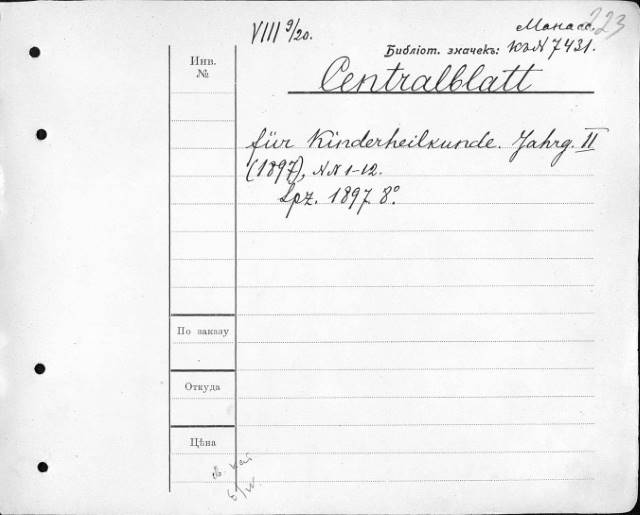 VIII 9/20.
Манасс. 223
Библіот. значекъ: къ N 7431.
Инв. №
Centralblatt
für Kinderheilkunde. Jahrg. II
(1897), NN 1-12.
Lpz. 1897. 8°.
По заказу
Откуда
Цѣна